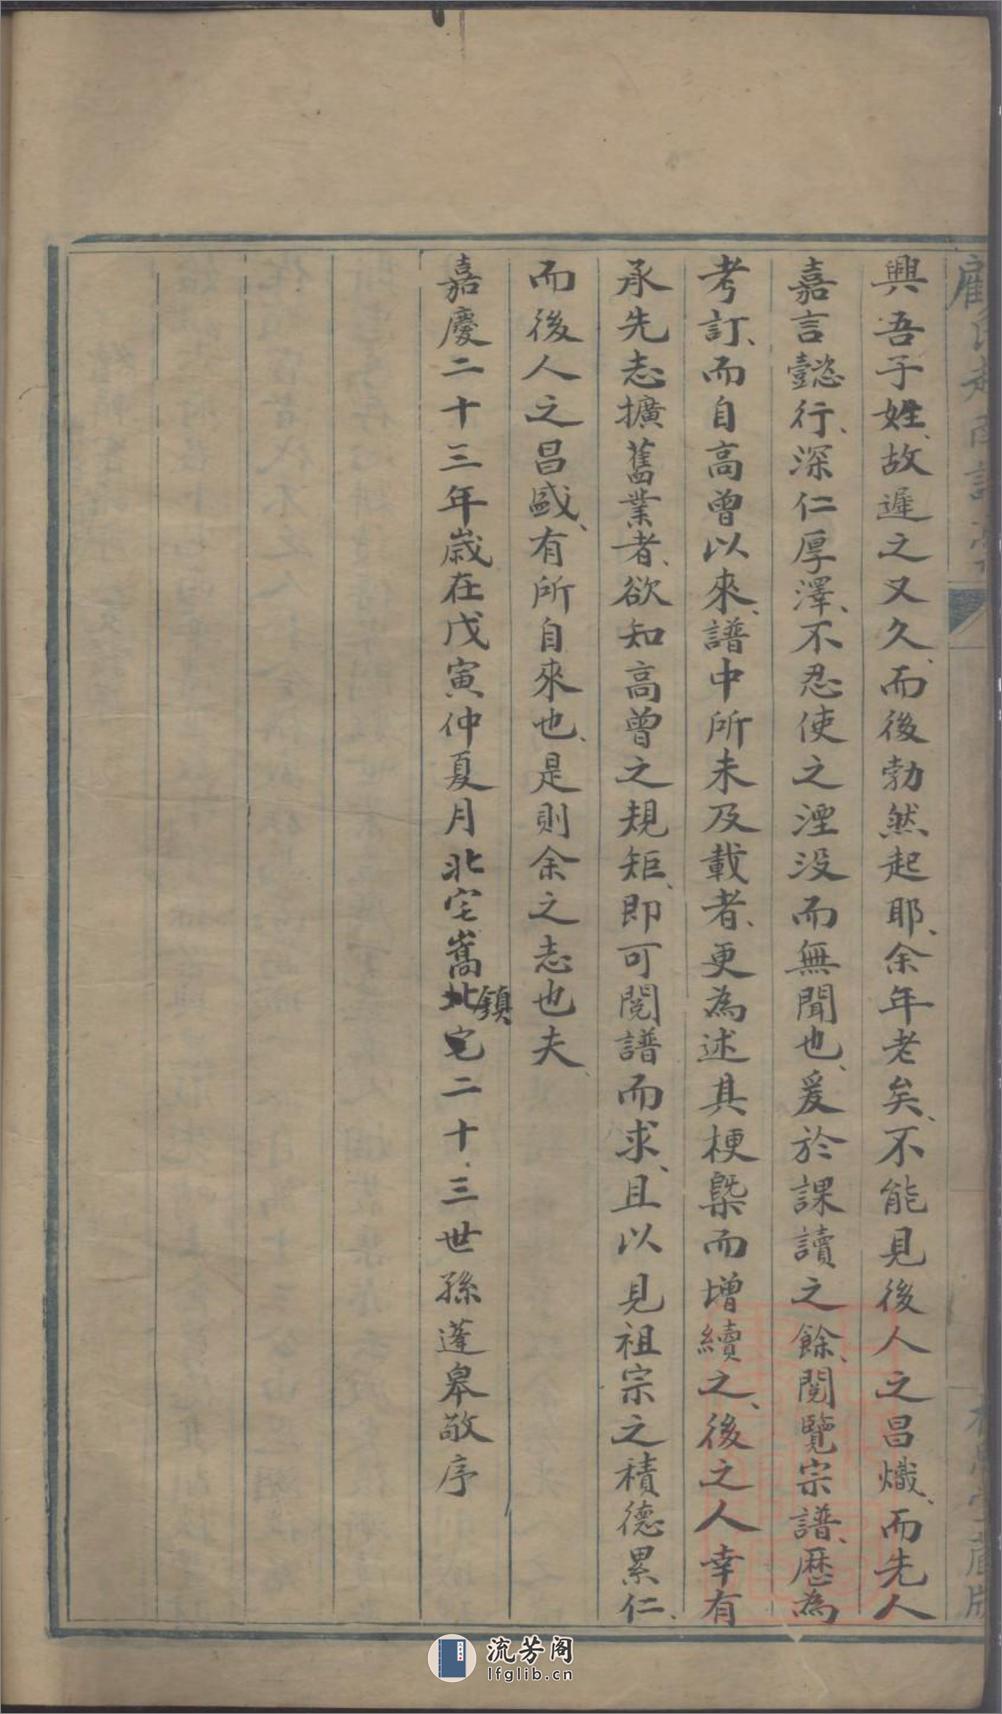 興吾子姓、故遲之又久、而後勃然起耶、余年老矣、不能見後人之昌熾、而先人
嘉言懿行、深仁厚澤、不忍使之湮没而無聞也、爰於課讀之餘、閱覽宗譜、歷為
考訂、而自高曾以來、譜中所未及載者、更為述其梗槩而增續之、後之人幸有
承先志擴舊業者、欲知高曾之規矩、即可閱譜而求、且以見祖宗之積德累仁、
而後人之昌盛、有所自來也、是則余之志也夫
嘉慶二十三年歲在戊寅仲夏月北宅嵩鎮北宅二十三世孫蓬皋敬序
流芳阁
lfglib.cn